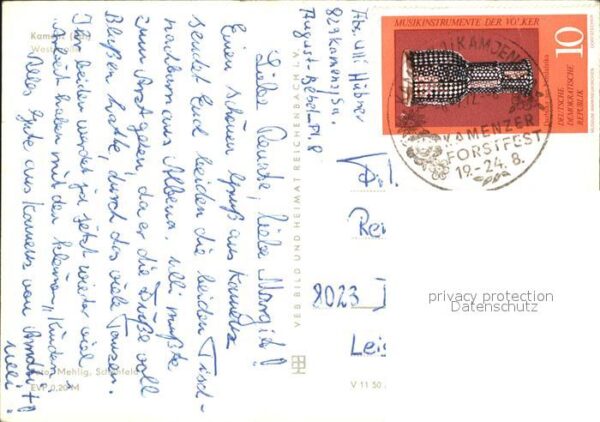 Kamenz
Liebe Renate, liebe Margit!
Einen schönen Gruß aus Kamenz
sendet Euch beiden die beiden Tisch-
nachbarn aus Albena. Ulli mußte
zum Arzt gehen, da er die Füße voll
Blasen hatte, durch das viele Tanzen.
Ihr beiden werdet ja jetzt wieder viel
Arbeit haben mit den kleinen „Kindern“.
Alles gute aus Kamenz von
Ulli!
Foto: Mehlig, Schönfeld
EVP 0,20 M
VEB BILD UND HEIMAT REICHENBACH i. V.
V 11 50
Abs. Ulli Hübner
829 Kamenz/Sa.
August-Bebel-Pl. 8
8023
MUSIKINSTRUMENTE DER VÖLKER
10
DEUTSCHE
DEMOKRATISCHE
REPUBLIK
KAMENZ
KAMENZER
FORSTFEST
19.-24. 8.
privacy protection
Datenschutz